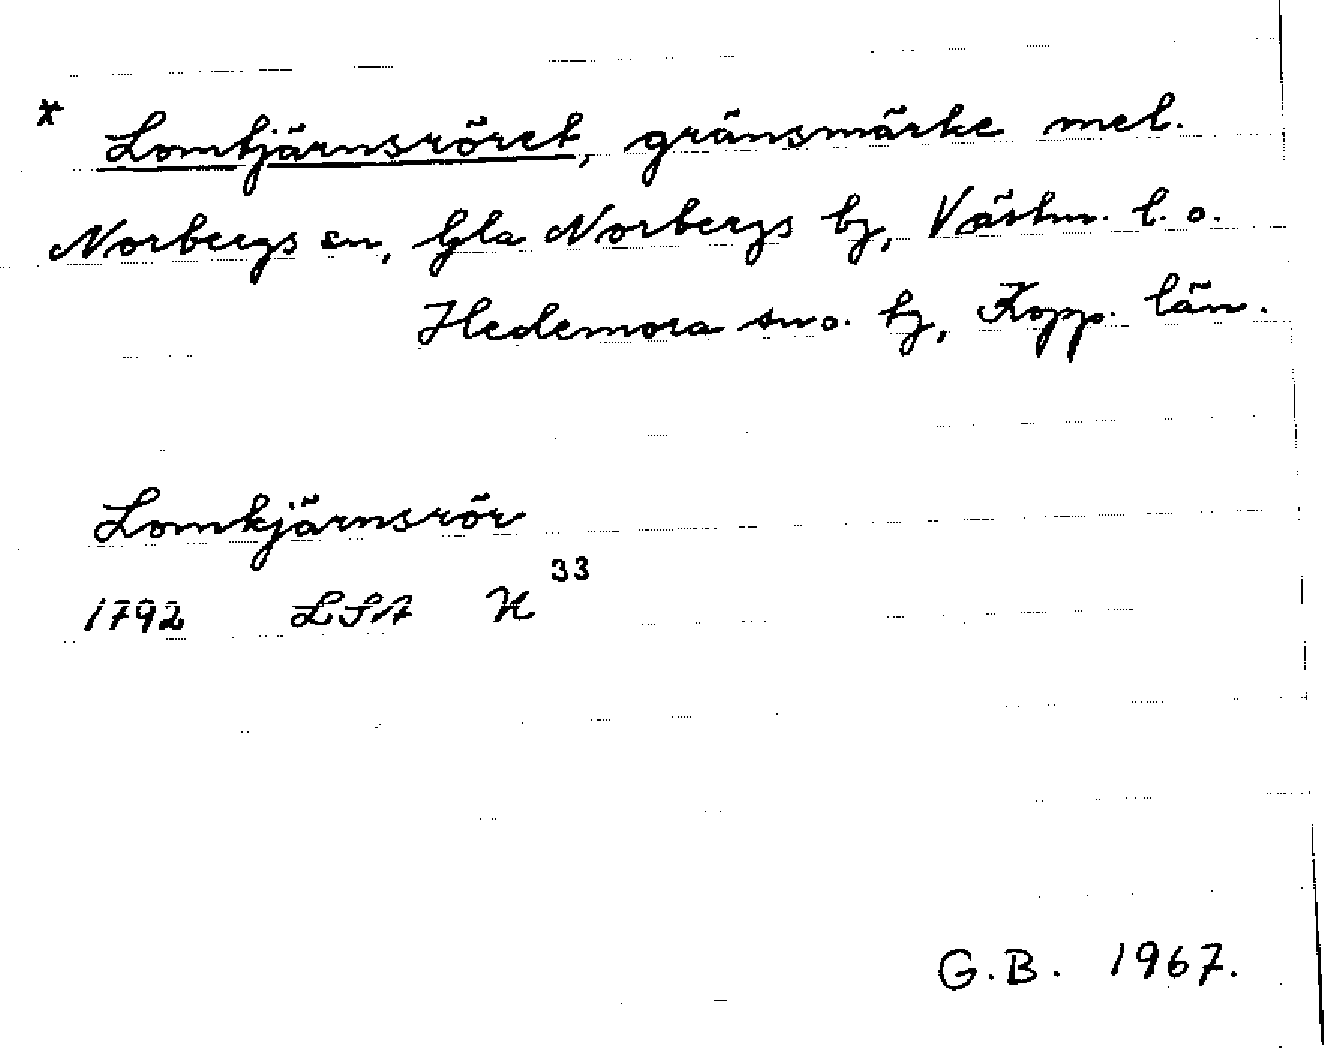 * Lomtjärnsröret, gränsmärke mel.
Norbergs sn, Gla Norbergs bg, Västm. l. o.
Hedemora sno. hg, Kopp. län.
Lomkjärnsrör
1792 LSA U 33
G.B. 1967.